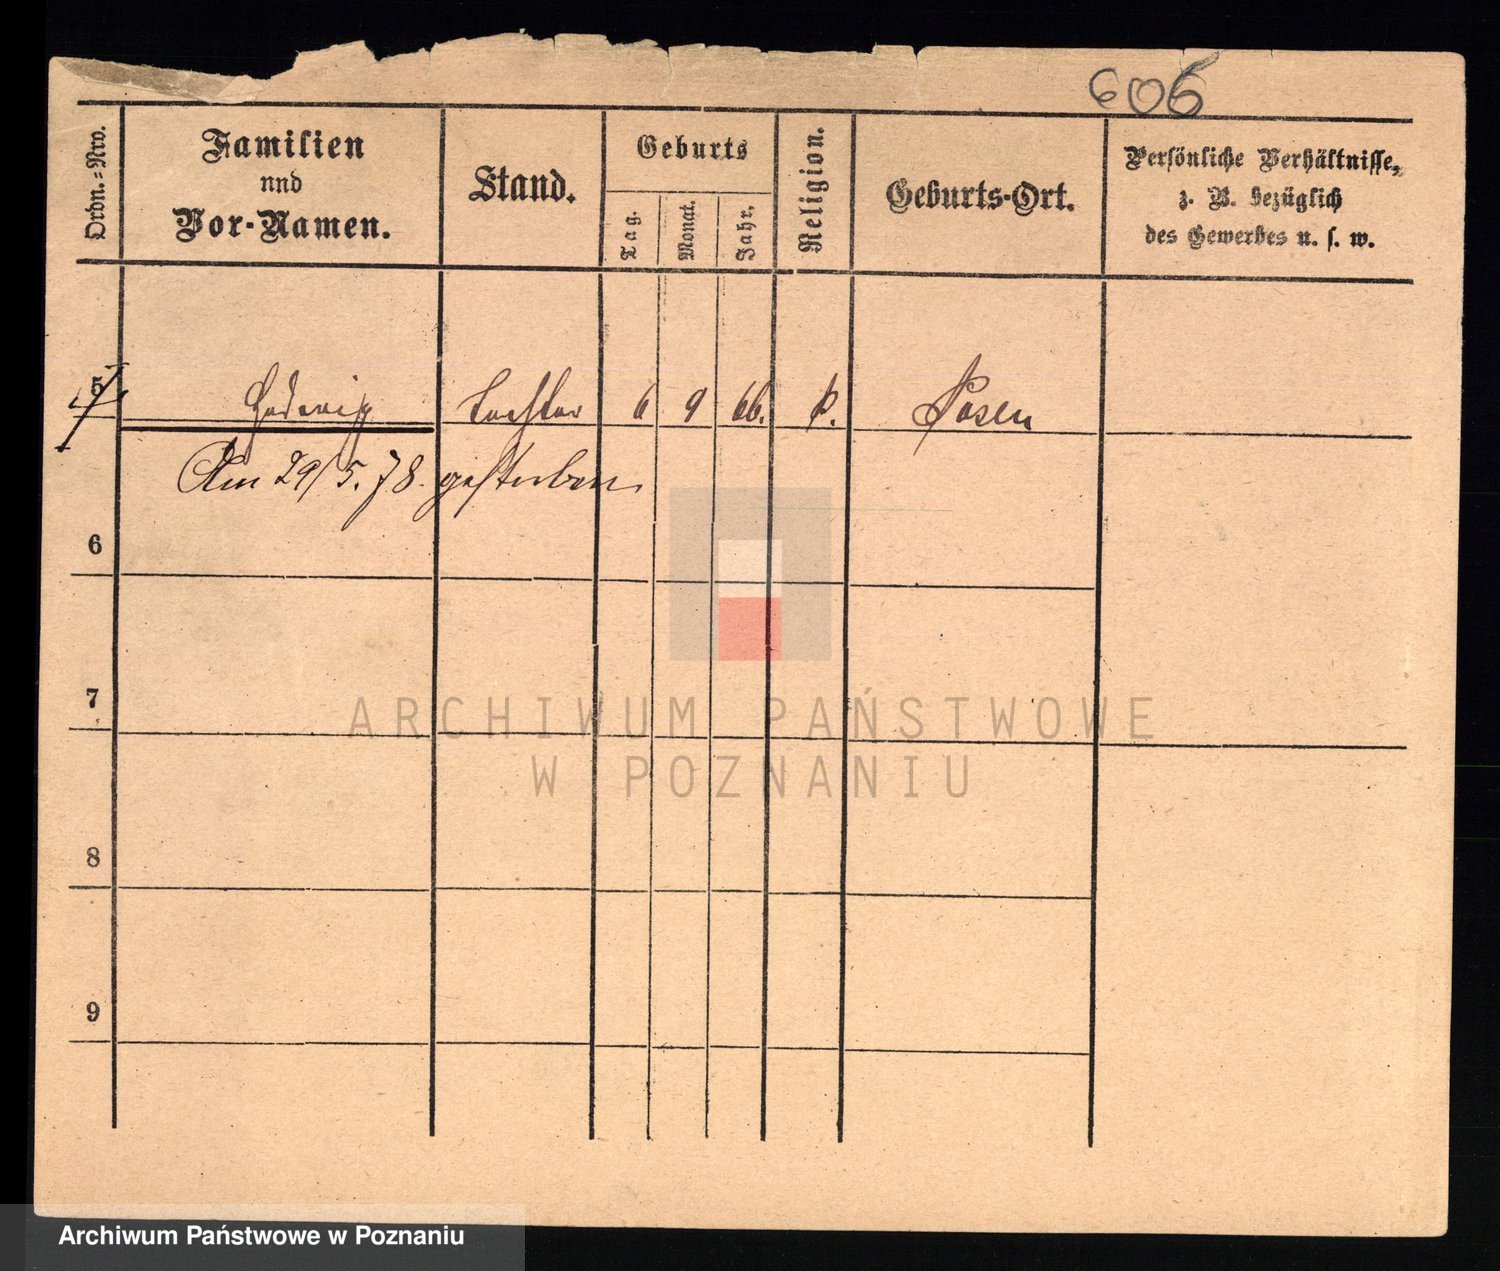 606
Ordn.=Nro.
Familien
nnd
Vor-Namen.
Stand.
Geburts
Tag.
Monat.
Jahr.
Religion.
Geburts-Ort.
Persönliche Verhältnisse,
z. B. bezüglich
des Gewerbes u. s. w.
5 Hedwig Tochter 6 9 66. Posen
Am 29/5. 78. gestorben.
6
7
ARCHIWUM PAŃSTWOWE
W POZNANIU
8
9
Archiwum Państwowe w Poznaniu